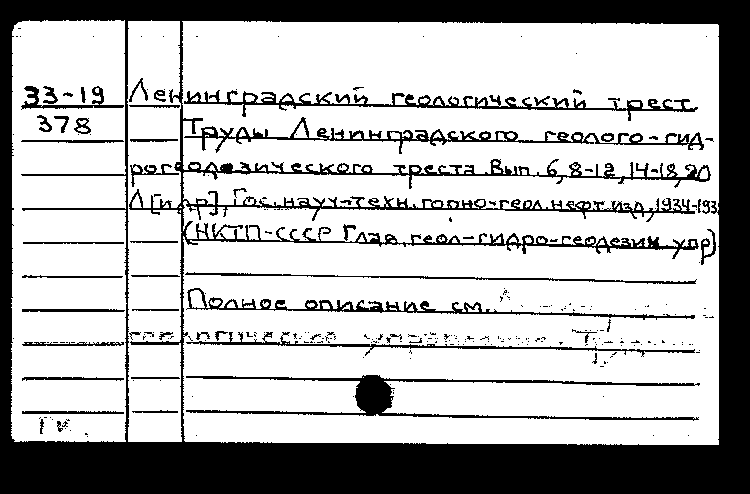 33-19 Ленинградский геологический трест
378 Труды Ленинградского геолого-гид-
рогеодезического треста. Вып. 6,8-12,14-18,20
Л[и др], Гос. науч-техн. горно-геол. нефт. изд, 1934-193
(НКТП-СССР Глав. геол-гидро-геодезич. упр)
Полное описание см.
геологическое управление. Труды